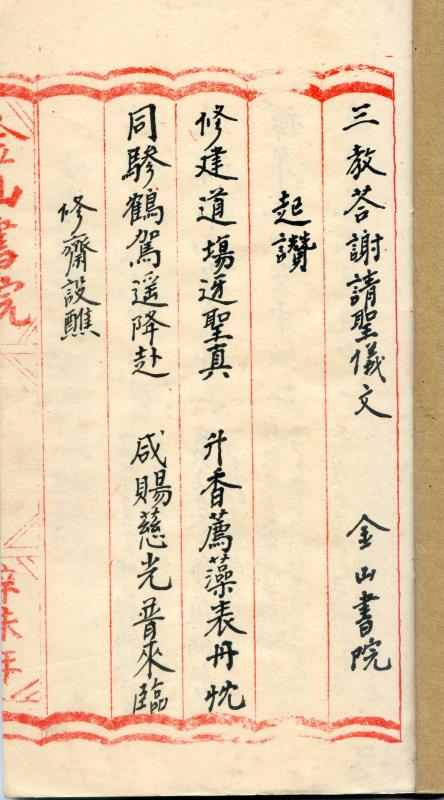 三教荅謝請聖儀文 金山書院
起讚
修建道塲迓聖真 升香薦藻表丹忱
同驂鶴駕遥降赴 咸賜慈光普來臨
修齋設醮
金山書院
辛未年